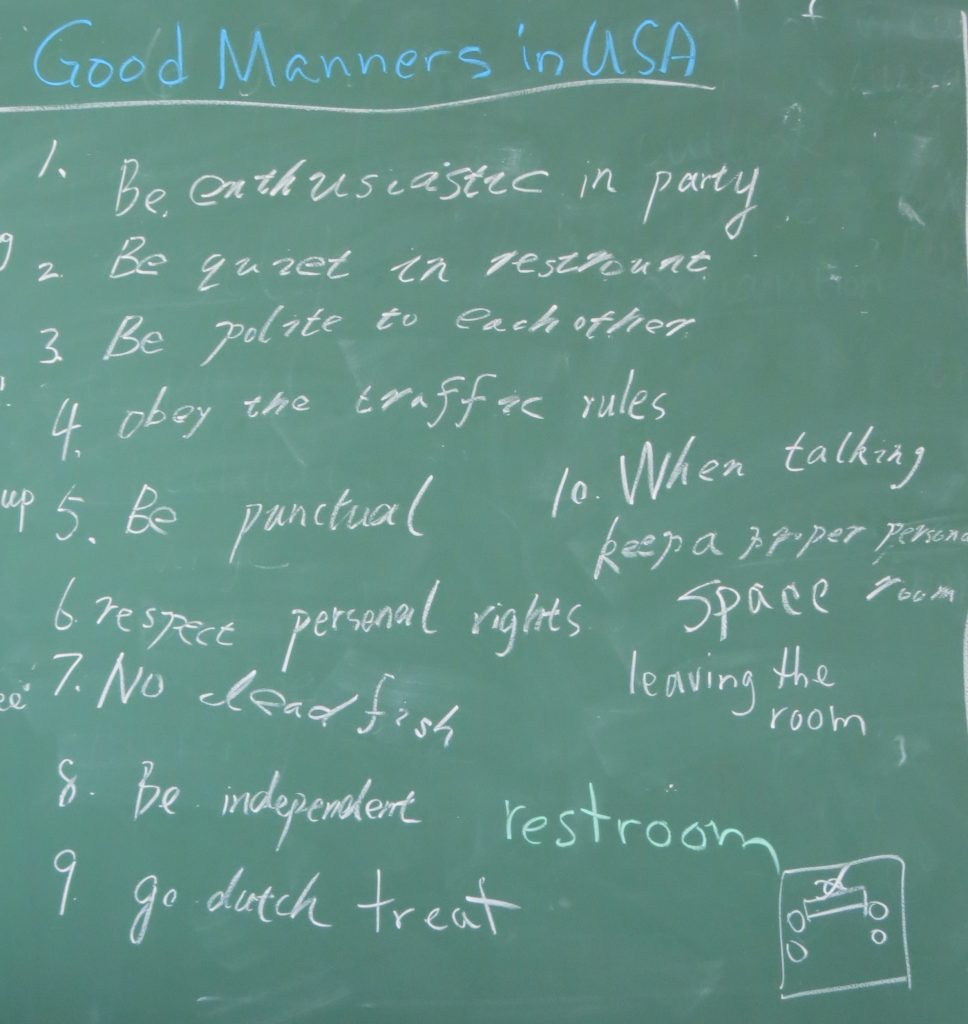 Good Manners in USA
1. Be enthusiastic in party
2. Be quiet in restrount
3. Be polite to each other
4. obey the traffic rules
up
5. Be punctual
6. respect personal rights
7. No dead fish
8. Be independent
9. go dutch treat
10. When talking
keep a proper persona
space room
leaving the
room
restroom